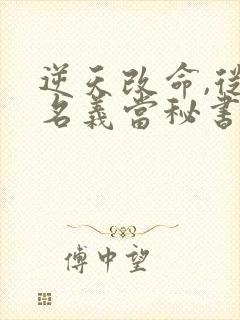 逆天改命,從
名義當秘書
傅中望